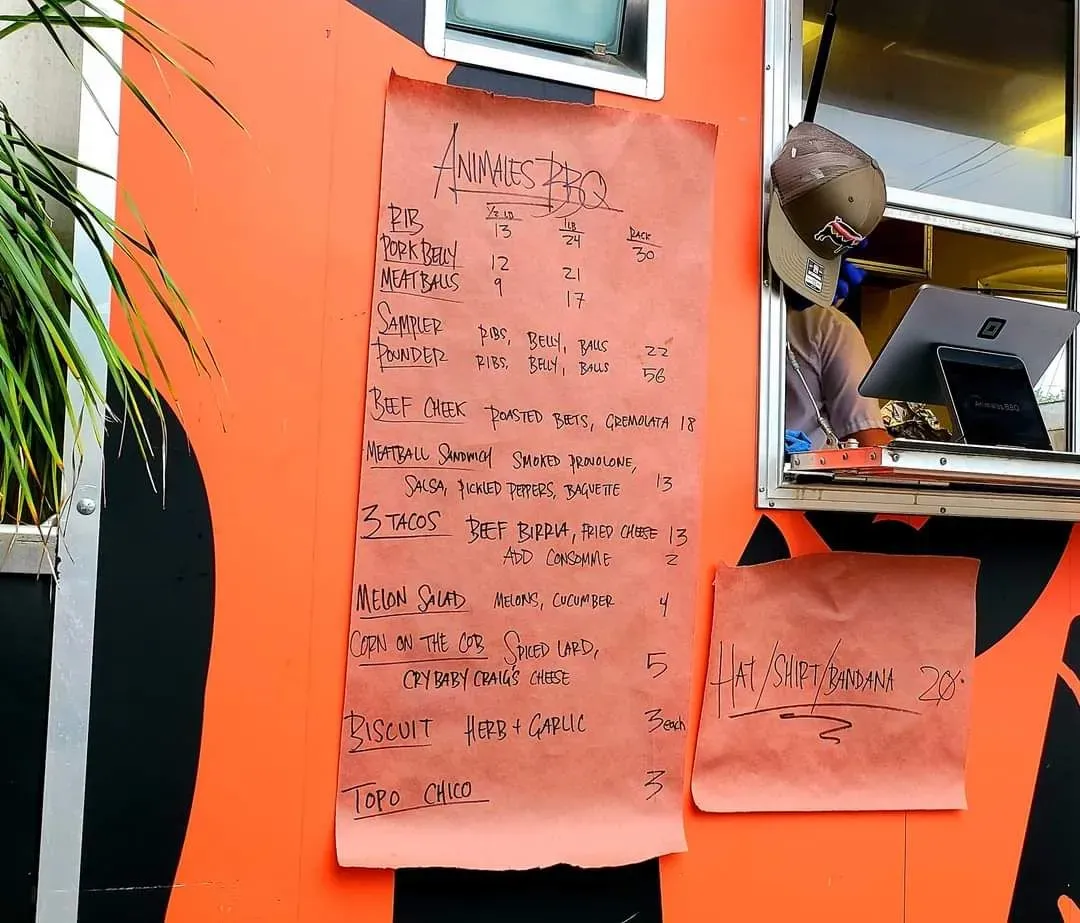 ANIMALES BBQ
1/2 LB 1 LB RACK
RIB 13 24 30
PORK BELLY 12 21
MEATBALLS 9 17
SAMPLER RIBS, BELLY, BALLS 22
POUNDER RIBS, BELLY, BALLS 56
BEEF CHEEK ROASTED BEETS, GREMOLATA 18
MEATBALL SANDWICH SMOKED PROVOLONE,
SALSA, PICKLED PEPPERS, BAGUETTE 13
3 TACOS BEEF BIRRIA, FRIED CHEESE 13
ADD CONSOMME 2
MELON SALAD MELONS, CUCUMBER 4
CORN ON THE COB SPICED LARD,
CRYBABY CRAIG'S CHEESE 5
BISCUIT HERB + GARLIC 3 each
TOPO CHICO 3
HAT/SHIRT/BANDANA 20.
Animales BBQ